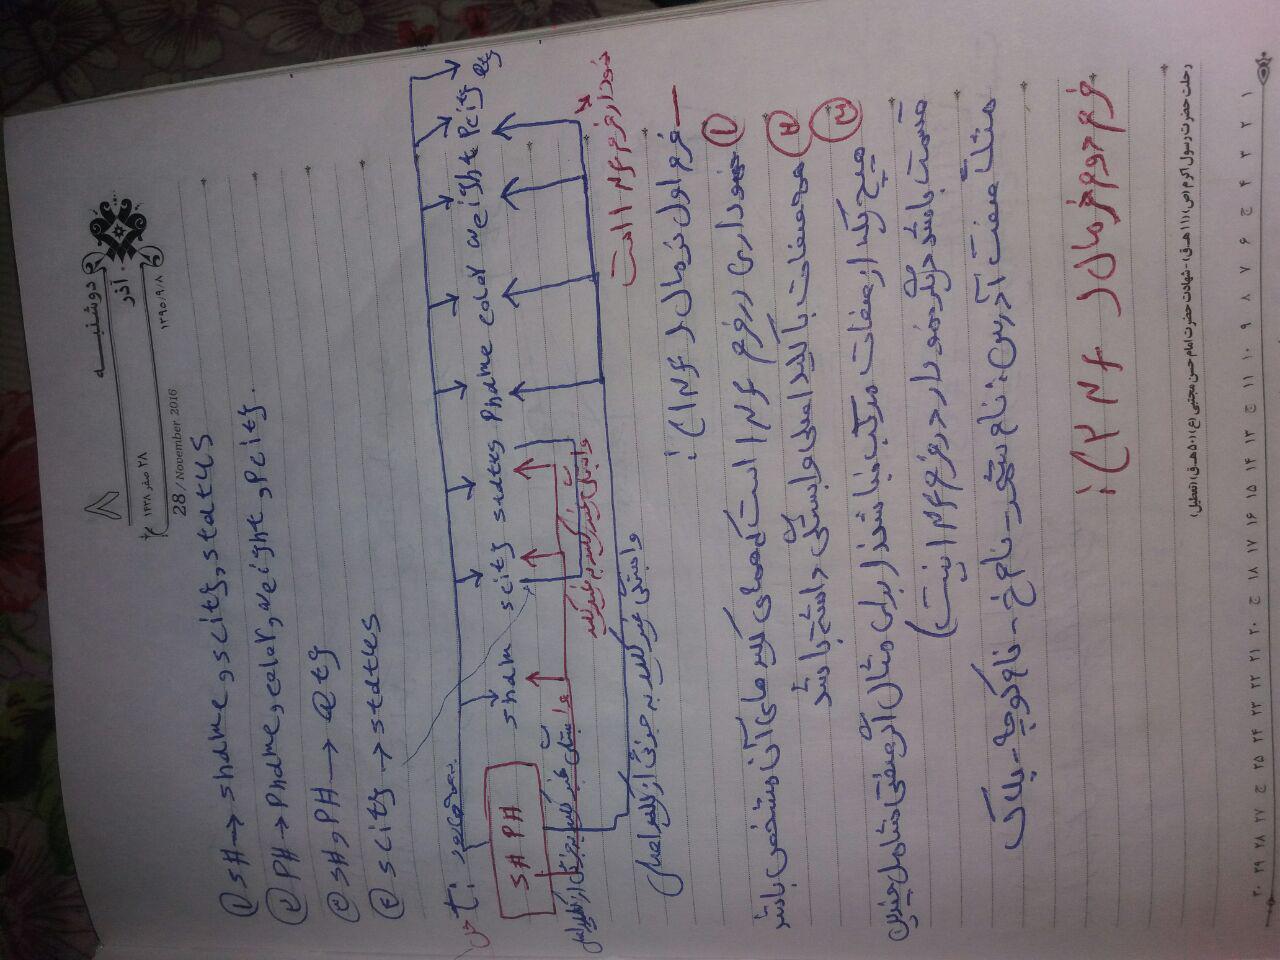 دوشنبه
۸
آذر
۲۸ صفر ۱۴۳۸
۱۳۹۵/۹/۸
28 / November 2016
① s# → sname, scity, status
② P# → Pname, color, weight, Pcity.
③ s#, P# → Qty
④ scity → status
t:
s# P# snam scity status Pname color weight Pcity Qty
وابستگی غیر کلید به جزئی از کلید اصلی
وابستگی غیر کلید به غیر کلید
نمودار فرم 1NF است
وابستگی غیر کلید به جزئی از کلید اصلی
– فرم اول نرمال (1NF):
① نموداری در فرم 1NF است که همه‌ی کلید های آن مشخص باشد
② همه صفات با کلید اصلی وابستگی داشته باشد
③ هیچ یک از صفات مرکب نباشند (برای مثال اگر صفتی شامل چندین
قسمت باشد دیگر نمودار در فرم 1NF نیست)
مثلاً صفت آدرس: نام شهر - نام خ - نام کوچه - پلاک
فرم دوم نرمال (2NF):
رحلت حضرت رسول اکرم (ص) (۱۱هـ.ق) - شهادت حضرت امام حسن مجتبی (ع) (۵۰هـ.ق) (تعطیل)
۱ ۲ ۳ ۴ ج ۶ ۷ ۸ ۹ ۱۰ ۱۱ ج ۱۳ ۱۴ ۱۵ ۱۶ ۱۷ ۱۸ ج ۲۰ ۲۱ ۲۲ ۲۳ ۲۴ ۲۵ ج ۲۷ ۲۸ ۲۹ ۳۰